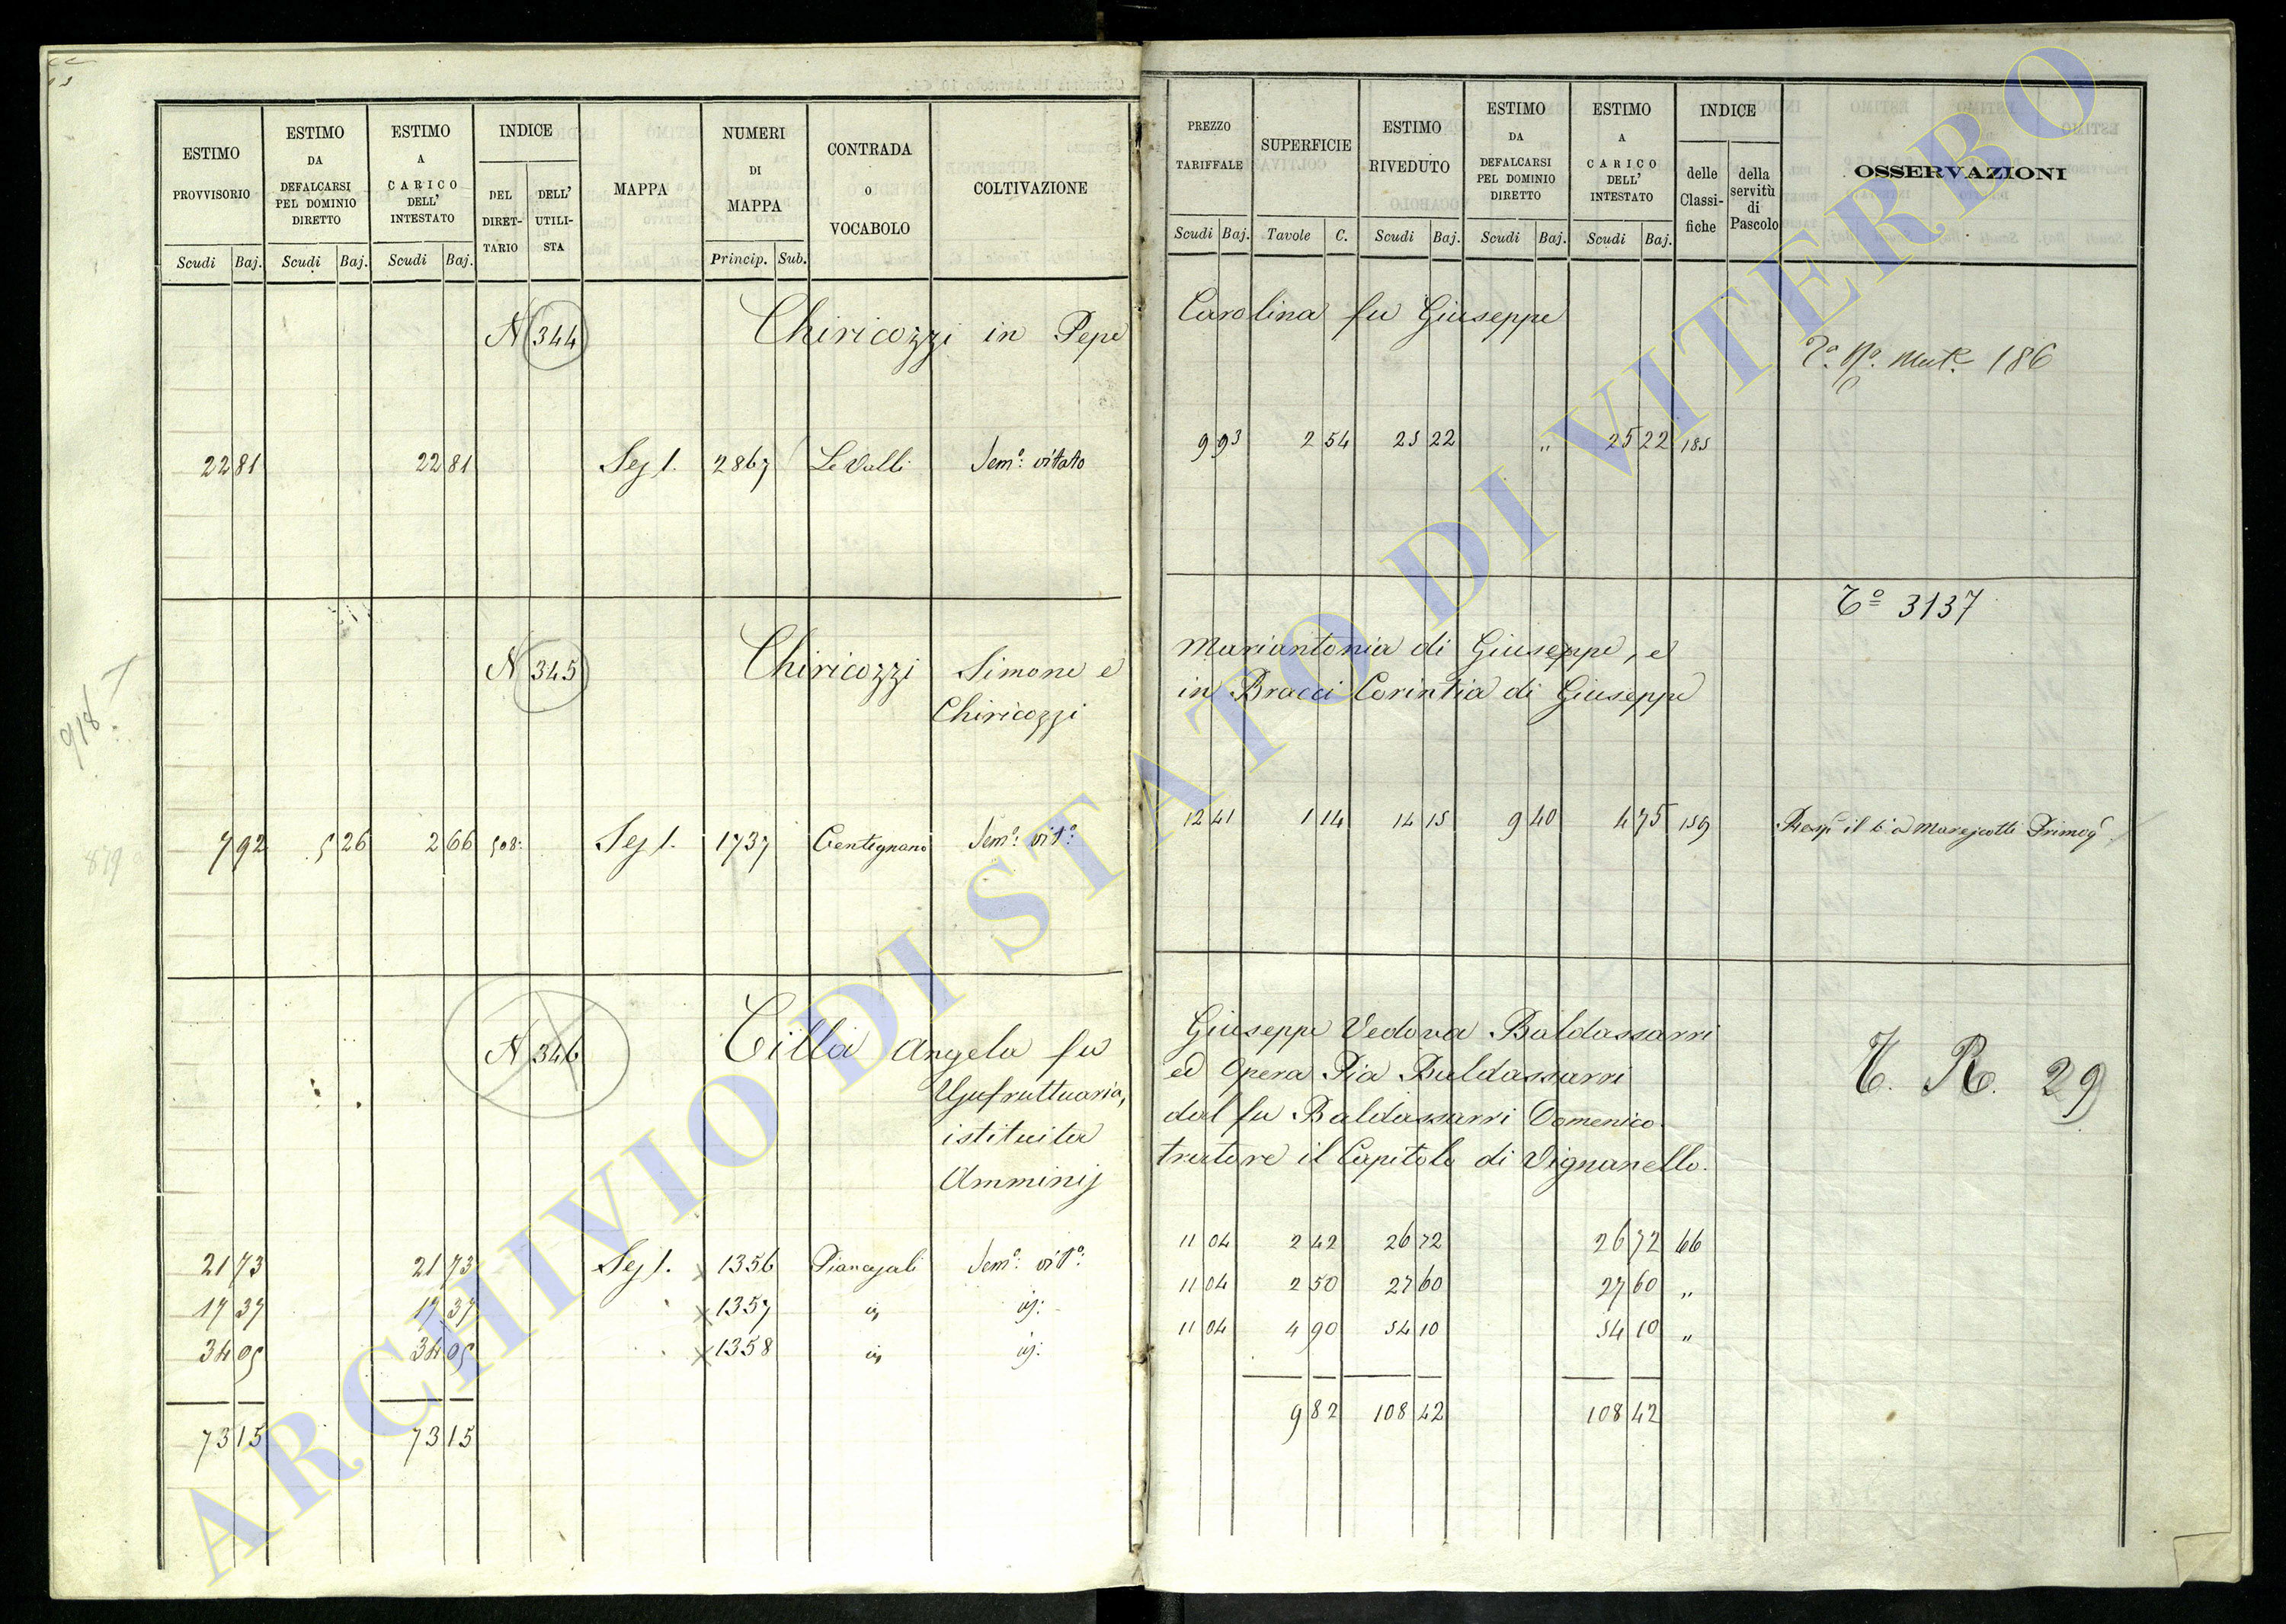 ESTIMO PROVVISORIO
ESTIMO DA DEFALCARSI PEL DOMINIO DIRETTO
ESTIMO A CARICO DELL' INTESTATO
INDICE
DEL DIRET-TARIO
DELL' UTILI-STA
MAPPA
NUMERI DI MAPPA
CONTRADA O VOCABOLO
COLTIVAZIONE
Scudi Baj. Scudi Baj. Scudi Baj. Princip. Sub.
N 344 Chiricozzi in Pepe
22 81 22 81 Sez I. 2867 Le Valli Sem.º vitato
N 345 Chiricozzi Simone e
Chiricozzi
918
7 92 5 26 2 66 508 Sez I. 1737 Centignano Sem.º vit.º
879
N 346 Cilla Angela fu
Usufruttuaria,
istituita
Amminis
21 73 21 73 Sez I. x 1356 Piancasali Sem.º vit.º
17 37 17 37 x 1357
34 05 34 05 x 1358
73 15 73 15
PREZZO TARIFFALE
SUPERFICIE
ESTIMO RIVEDUTO
ESTIMO DA DEFALCARSI PEL DOMINIO DIRETTO
ESTIMO A CARICO DELL' INTESTATO
INDICE
delle Classi-fiche
della servitù di Pascolo
OSSERVAZIONI
Scudi Baj. Tavole C. Scudi Baj. Scudi Baj. Scudi Baj.
Carolina fu Giuseppe
186
9 93 2 54 25 22 " 25 22 185
Tº 3137
Mariantonia di Giuseppe, e
in Bracci Corintia di Giuseppe
12 41 1 14 14 15 9 40 4 75 159 il Marescotti Primog
Giuseppe Vedova Baldassarri
ed Opera Pia Baldassarri
T. R. 29
dal fu Baldassarri Domenico
tratore il Capitolo di Vignanello.
11 04 2 42 26 72 26 72 66
11 04 2 50 27 60 27 60 "
11 04 4 90 54 10 54 10 "
9 82 108 42 108 42
ARCHIVIO DI STATO DI VITERBO